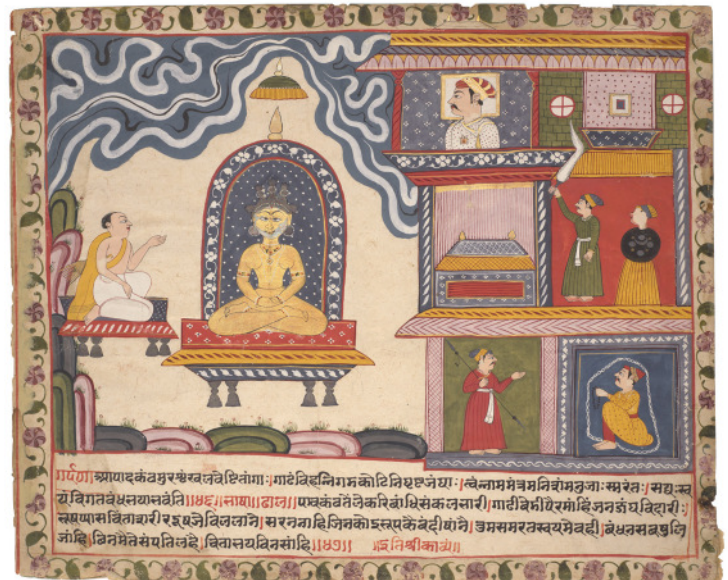 आपादकंठमुरशृंखलवेष्टितांगाः। गाढंवृहन्निगडकोटिनिघृष्टजंघाः। त्वन्नाममंत्रमनिशंमनुजाःस्मरंतः। सद्यःस्व
यंविगतवंधभयाभवंति॥४६॥भाषा॥ढाल॥ करिबांधिसंकलभारी। गाढीबेडीपैरमांहिंजिनजंघविदारी।
भूषप्यासचिंताशरीरदुषजेविललाने। सरननाहिजिनकोइभूपकेबंदीषांनै। तुमसमरतस्वयमेवही। बंधनसबषुलि
जांहि। छिनमैतेसंपतिलहै। चिंताभयविनसांहि॥४७॥ इतिश्रीकाव्यं॥